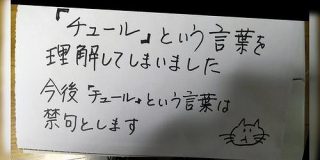 『チュール』という言葉を
理解してしまいました
今後『チュール』という言葉は
禁句とします